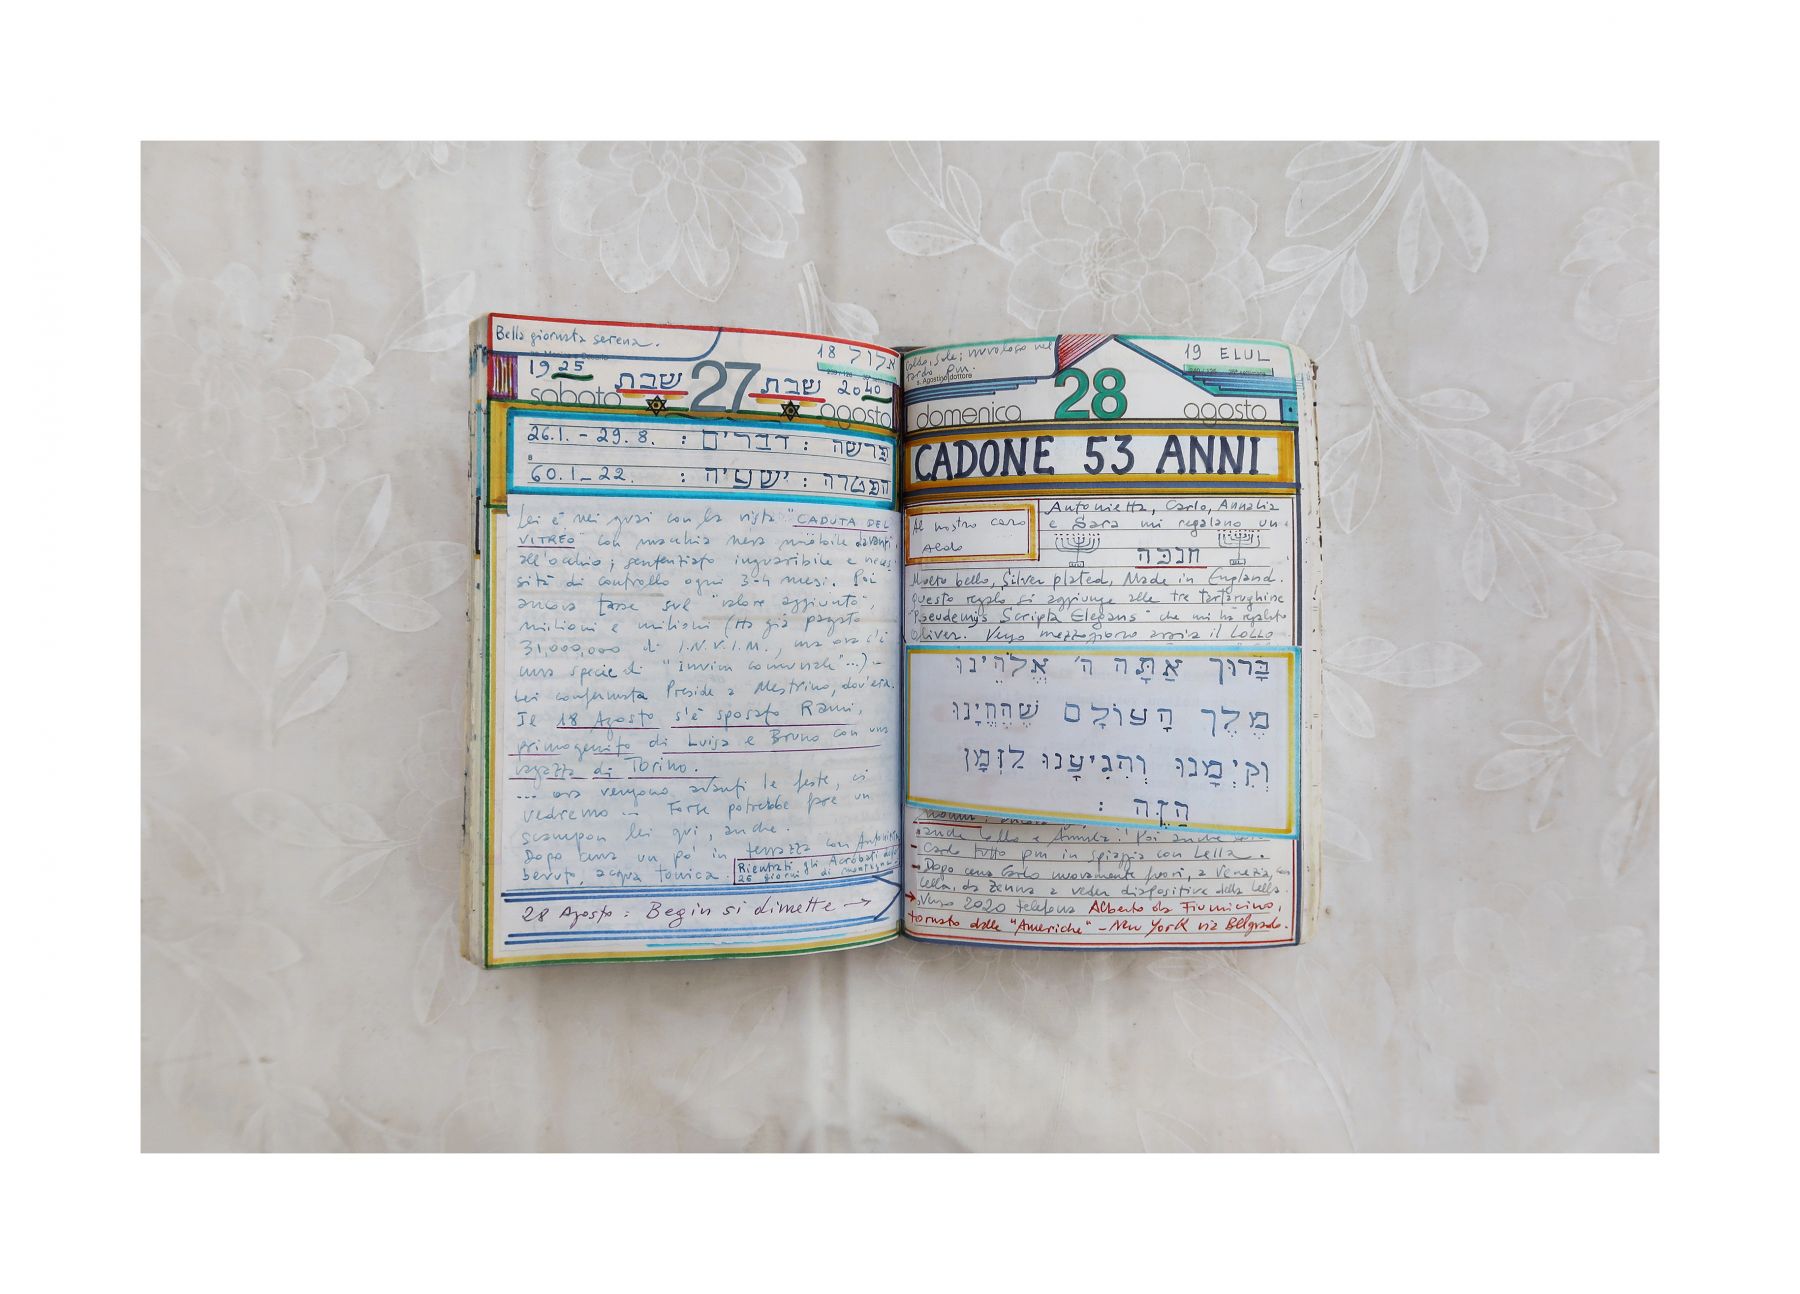 Bella giornata serena.
18 אלול
19 25
sabato שבת 27 שבת 20 40
agosto
26.1. – 29. 8. : פרשה : דברים
60.1 – 22. : הפטרה : ישעיה
Lei è nei guai con la vista "CADUTA DEL
VITREO" con macchia nera mobile davanti
all'occhio; sentenziato inguaribile e neces-
sità di controllo ogni 3-4 mesi. Poi
ancora tasse sul "valore aggiunto",
milioni e milioni (Ha già pagato
31,000,000 di I.N.V.I.M., ma ora c'è
una specie di "Invim comunale"...) –
Lei confermata Preside a Mestrino, dov'era.
Il 18 Agosto s'è sposato Rami,
primogenito di Luisa e Bruno con una
ragazza di Torino.
... ora vengono avanti le feste, ci
vedremo ... Forse potrebbe fare un
scampon lei qui, anche.
Dopo cena un po' in terrazza con
bevuto, acqua tonica.
Rientrati gli Acrobati
26 giorni di
28 Agosto : Begin si dimette →
Caldo, sole; nuvoloso nel
tardo pm.
s. Agostino dottore
19 ELUL
domenica 28 agosto
CADONE 53 ANNI
Al nostro caro
Aldo
Antonietta, Carlo, Annalia
e Sara mi regalano un
חנכה
Molto bello, Silver plated, Made in England.
Questo regalo si aggiunge alle tre tartarughine
"Pseudemys Scripta Elegans" che mi ha regalato
Oliver. Verso mezzogiorno arriva il LOLLO
בָּרוּךְ אַתָּה ה' אֱלֹהֵינוּ
מֶלֶךְ הָעוֹלָם שֶׁהֶחֱיָנוּ
וְקִיְּמָנוּ וְהִגִּיעָנוּ לַזְּמָן
הַזֶּה :
anche Lella e Poi anche
– Carlo tutto pm in spiaggia con Lella.
– Dopo cena Carlo nuovamente fuori, a Venezia, con
Lella, da Zenna a veder diapositive della Lella.
→ Verso 2020 telefona Alberto da Fiumicino,
tornato dalle "Americhe" – New York via Belgrado.